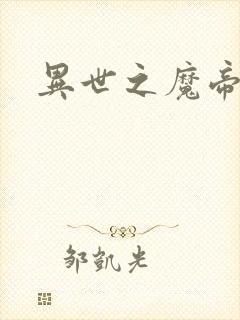 異世之魔帝
邹凱光